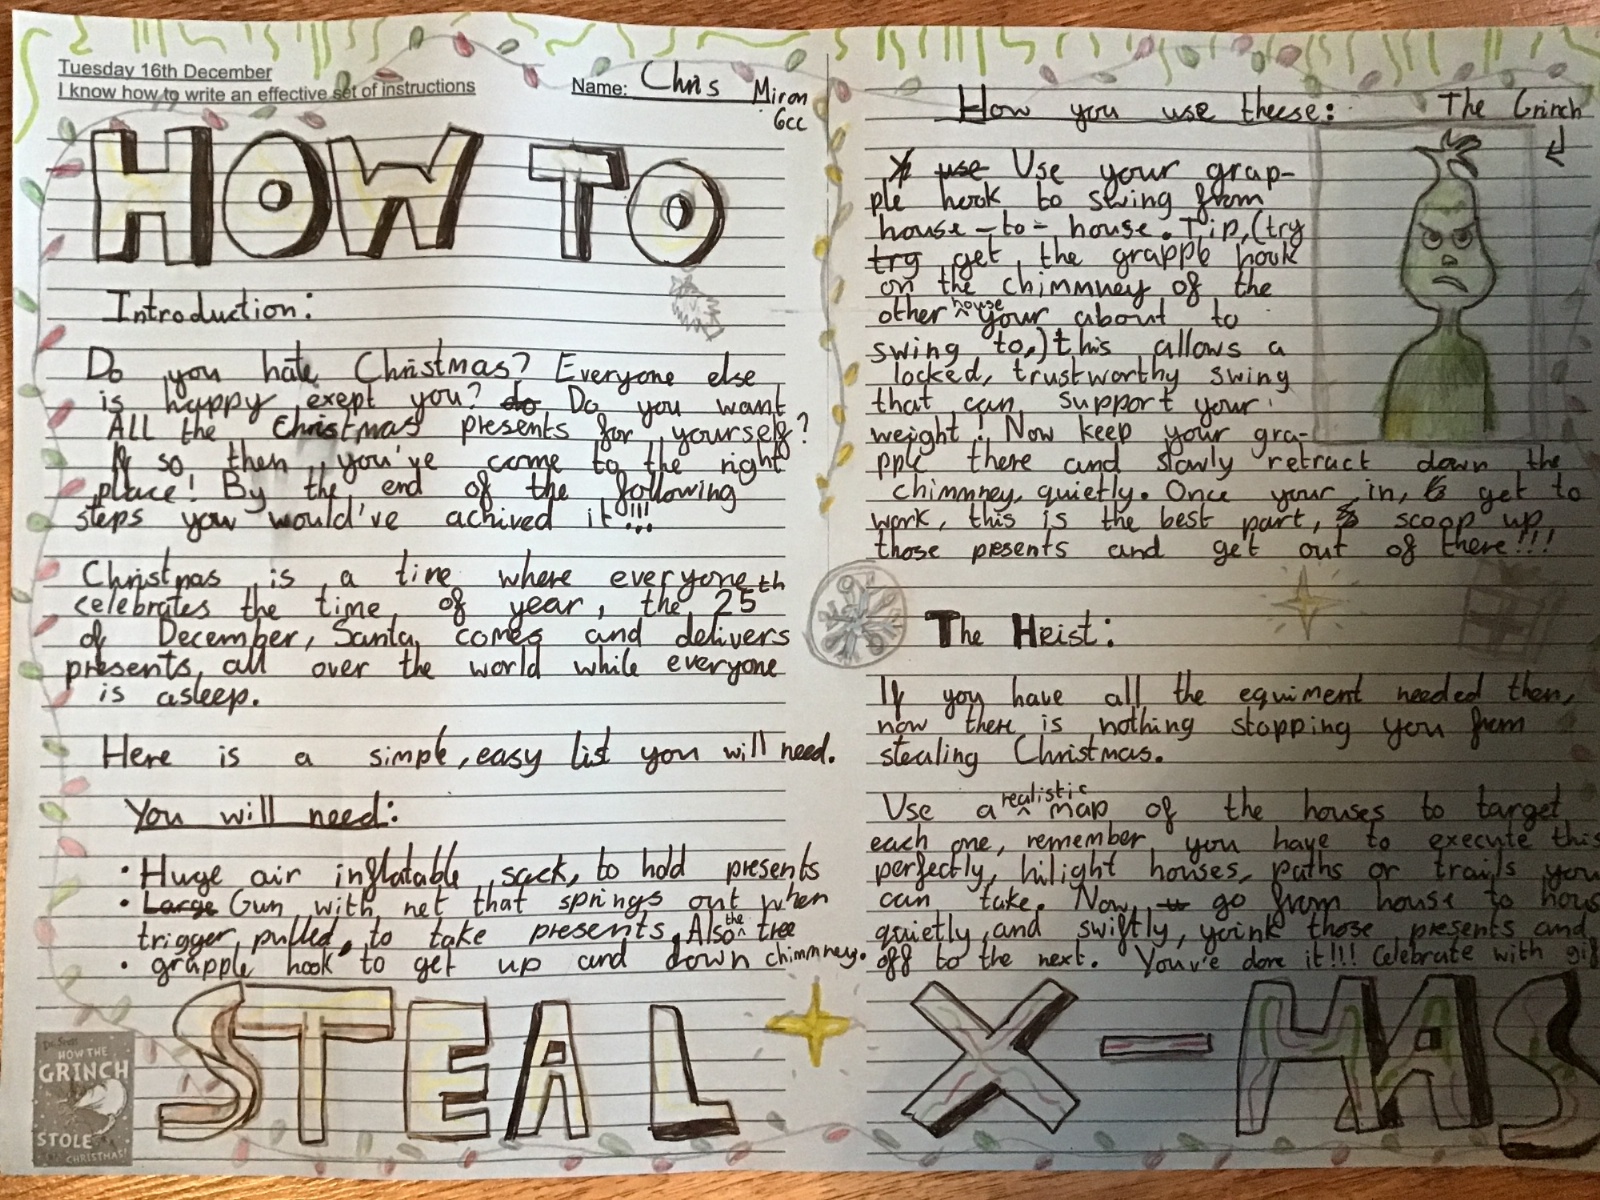 Tuesday 16th December
I know how to write an effective set of instructions
Name: Chris Miron
6cc
HOW TO
Introduction:
Do you hate Christmas? Everyone else
is happy exept you? do Do you want
All the Christmas presents for yourself?
If so, then you've come to the right
place! By the end of the following
steps you would've achived it!!!
Christmas is a time where everyone
celebrates the time of year, the 25th
of December, Santa comes and delivers
presents, all over the world while everyone
is asleep.
Here is a simple, easy list you will need.
You will need:
• Huge air inflatable sack, to hold presents
• Large Gun with net that springs out when
trigger pulled, to take presents. Also the tree
• grapple hook to get up and down chimmney.
STEAL
Dr. Seuss
HOW THE
GRINCH
STOLE
CHRISTMAS!
How you use theese:
The Grinch
use Use your grap-
ple hook to swing from
house-to-house. Tip, (try
try get the grapple hook
on the chimmney of the
other house your about to
swing to,) this allows a
locked, trustworthy swing
that can support your
weight! Now keep your gra-
pple there and slowly retract down the
chimmney, quietly. Once your in, get to
work, this is the best part, scoop up
those presents and get out of there!!!
The Heist:
If you have all the equiment needed then,
now there is nothing stopping you from
stealing Christmas.
Use a realistic map of the houses to target
each one, remember you have to execute this
perfectly, hilight houses, paths or trails you
can take. Now, go from house to hous
quietly, and swiftly, yoink those presents and
off to the next. You've done it!!! Celebrate with gif
X-MAS